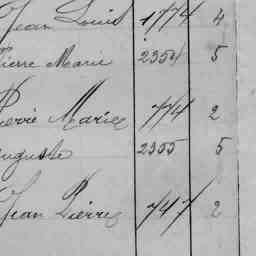 Jean Louis 1774 4
Pierre Marie 2354 5
Pierre Marie 774 2
Auguste 2355 5
Jean Pierre 747 2